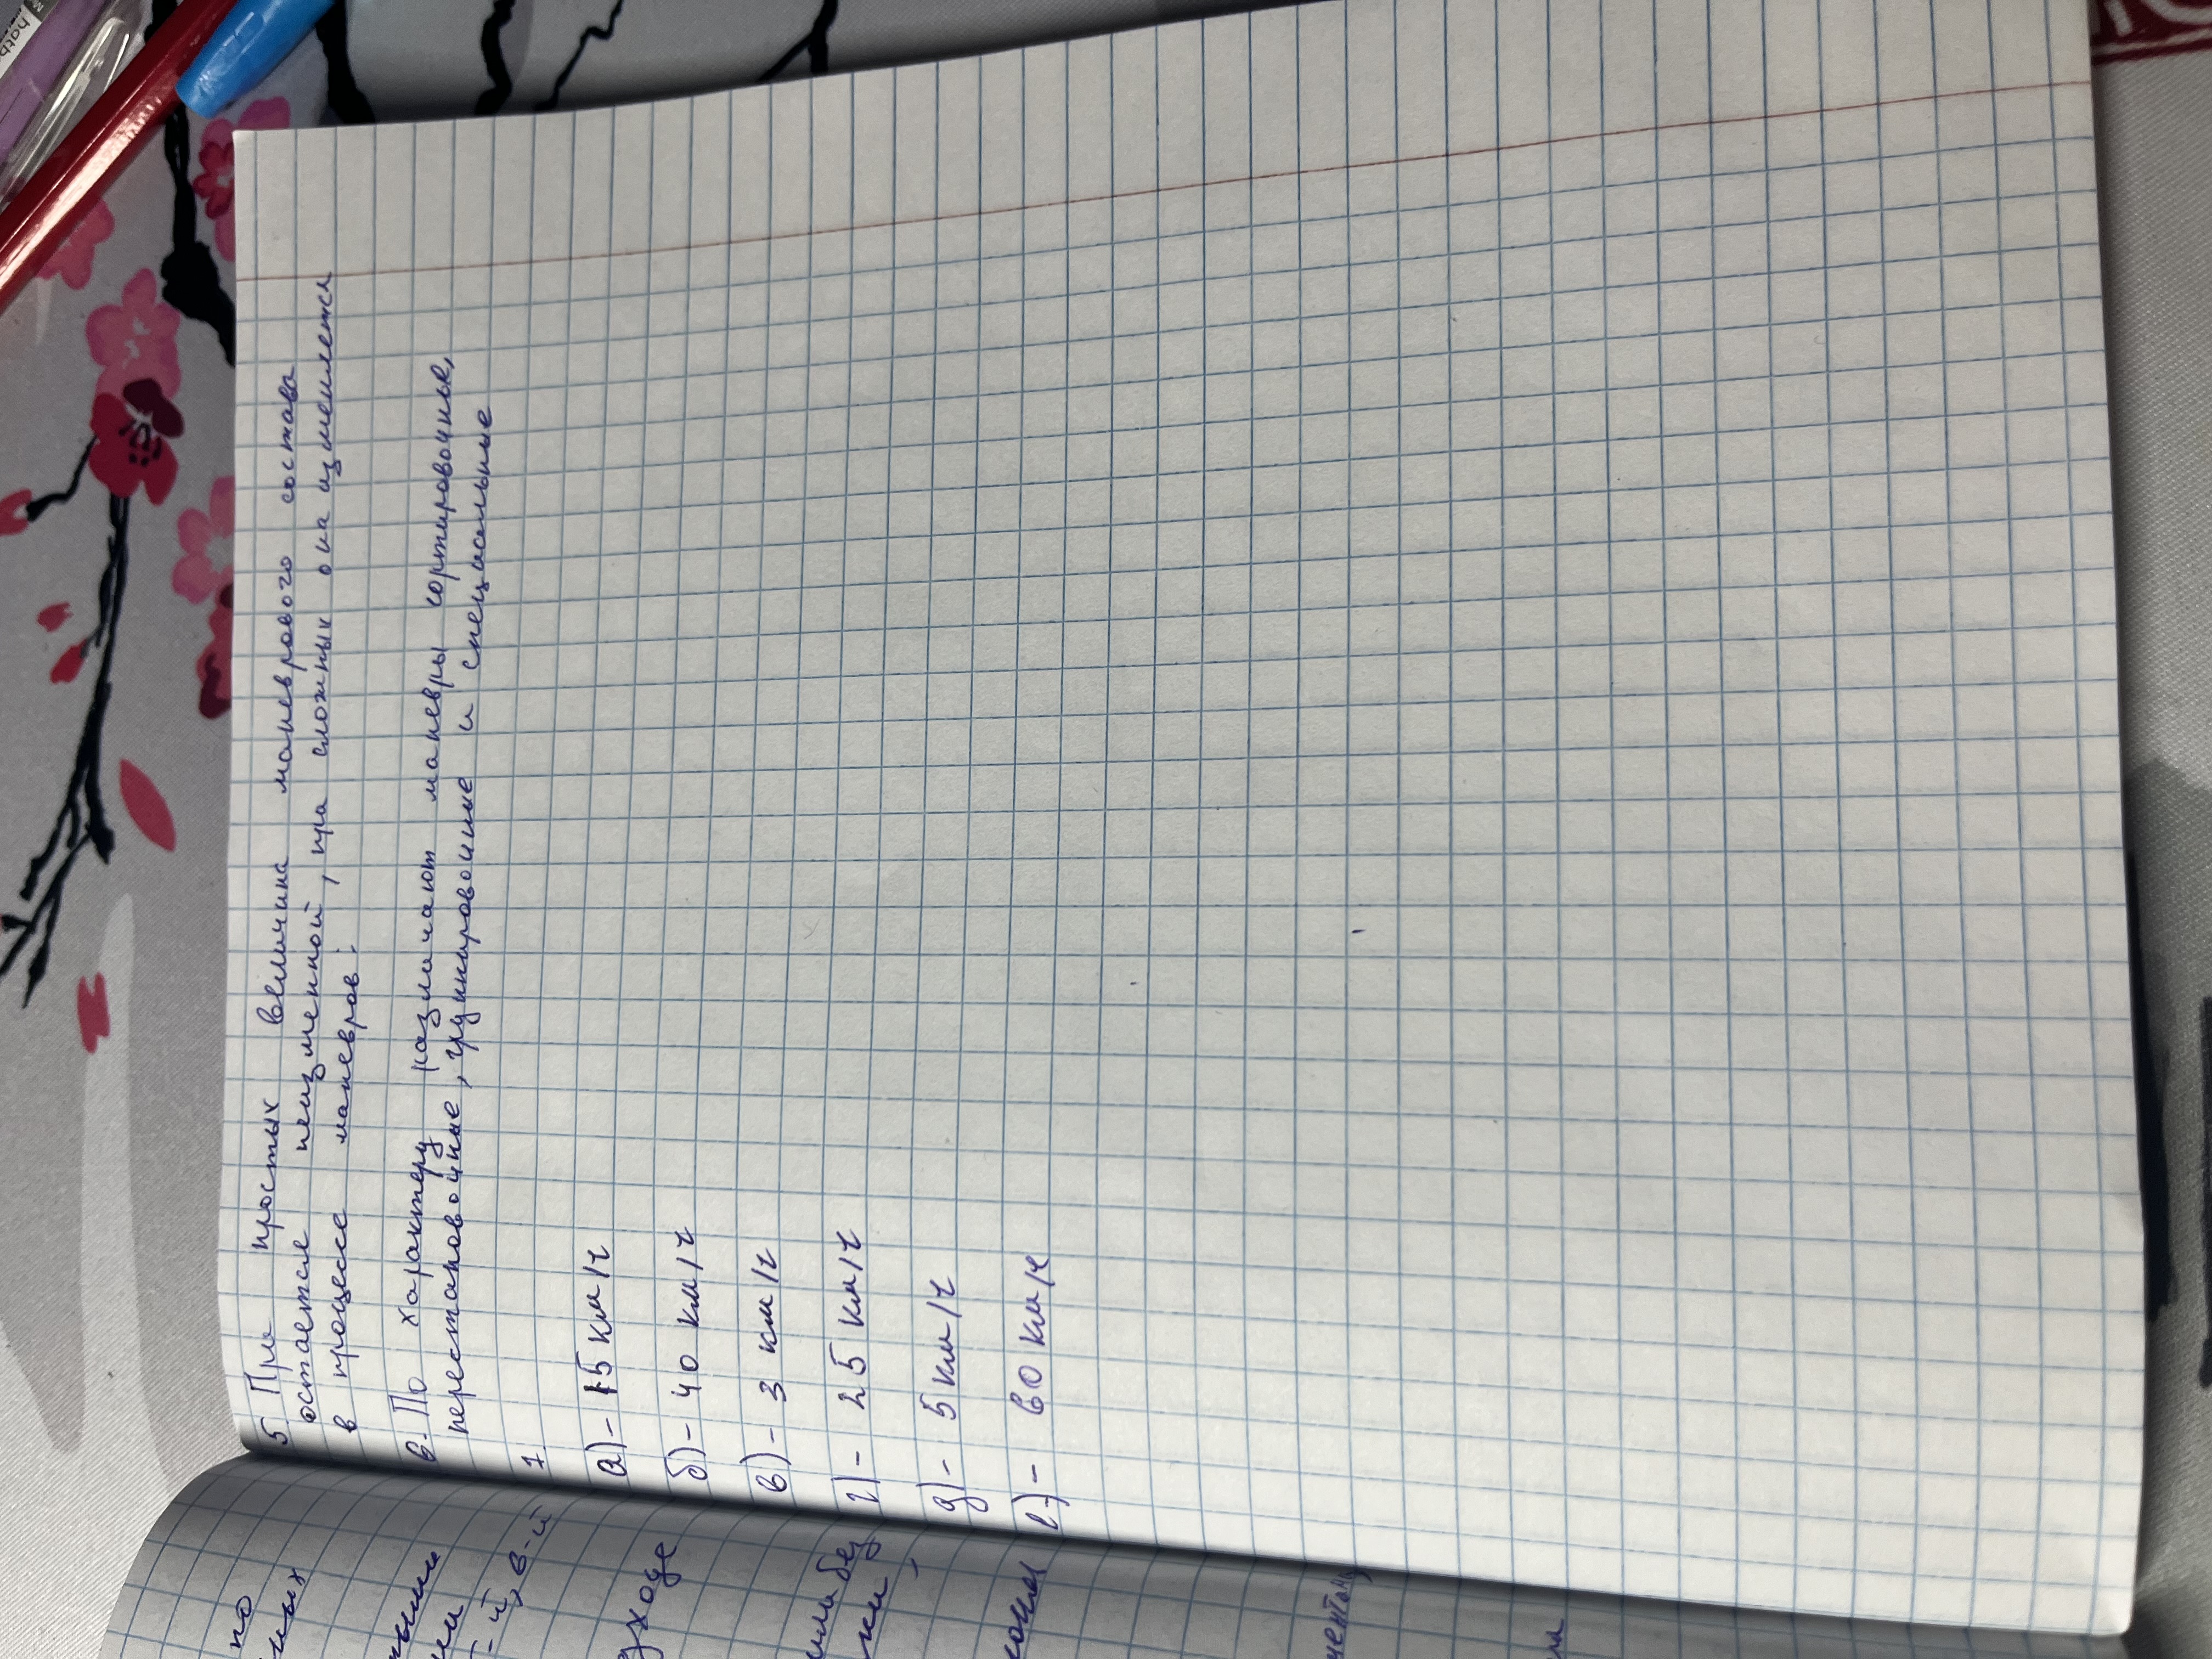 5 При простых величина маневрового состава
остается неизменной, при сложных она изменяется
в процессе маневров.
6. По характеру различают маневры сортировочные,
перестановочные, группировочные и специальные
7.
а) - 15 км/ч
б) - 40 км/ч
в) - 3 км/ч
г) - 25 км/ч
д) - 5 км/ч
е) - 60 км/ч
по
ных
-й, в-й
ходе
или без